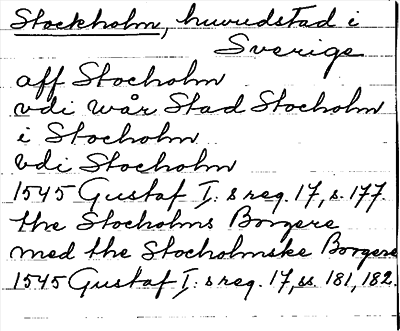 Stockholm, huvudstad i
Sverige
aff Stocholm
vdi wår Stad Stocholm
i Stocholm
vdi Stocholm
1545 Gustaf I:s reg. 17, s. 177.
the Stocholms Borgere
med the Stocholmske Borgere
1545 Gustaf I:s reg. 17, ss. 181, 182.